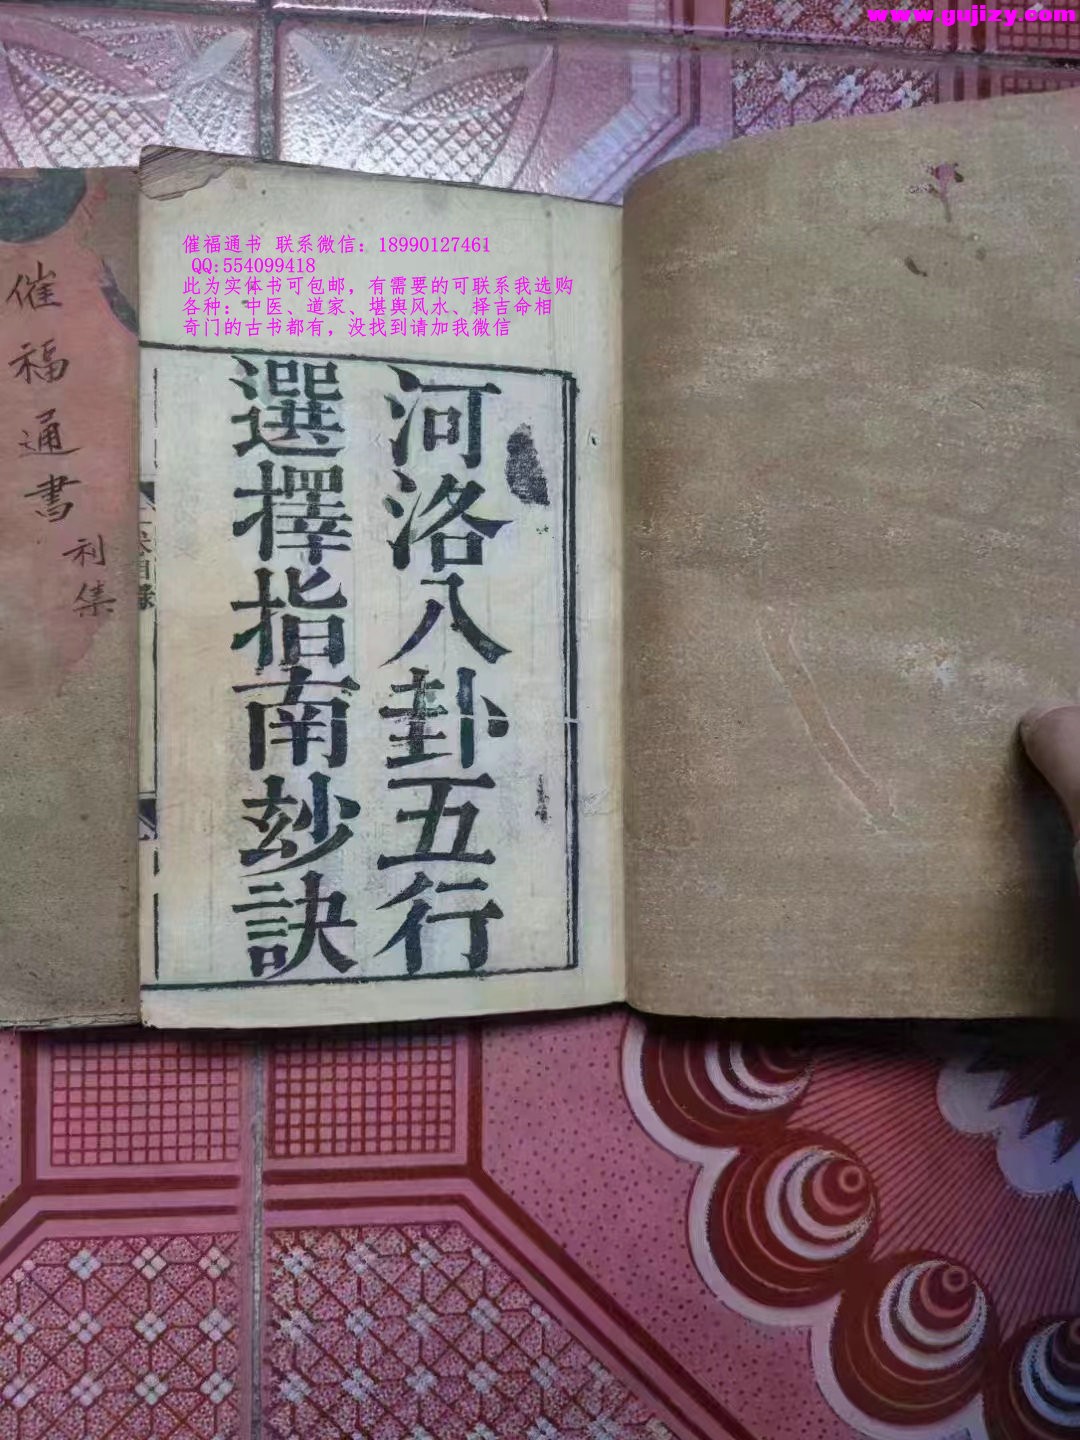 www.gujizy.com
催福通书 联系微信：18990127461
QQ:554099418
此为实体书可包邮，有需要的可联系我选购
各种：中医、道家、堪舆风水、择吉命相
奇门的古书都有，没找到请加我微信
河洛八卦五行
選擇指南玅訣
催福通書
利集
目錄